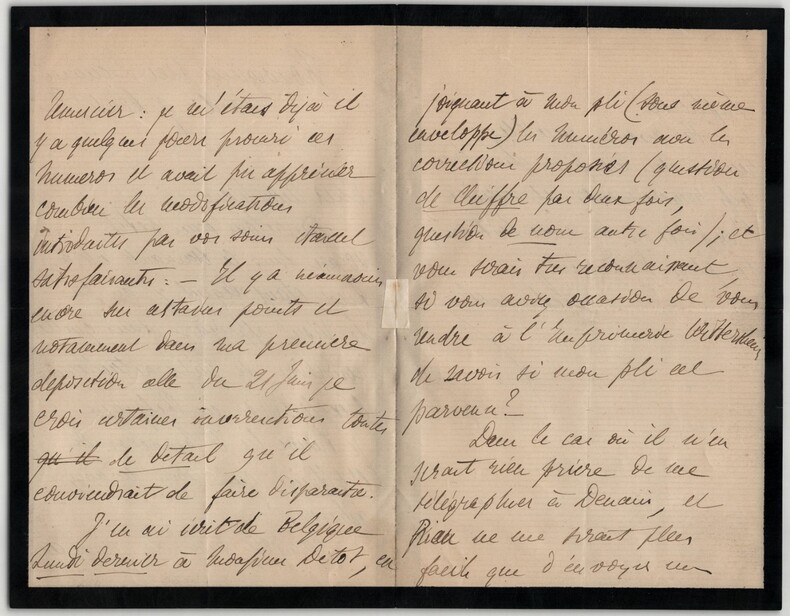 Monsieur : je m'étais déjà il
y a quelques jours procuré ces
numeros et avait pu apprécier
combien les modifications
introduites par vos soins étaient
satisfaisantes : – Il y a néanmoins
encore sur certains points et
notamment dans ma première
deposition celle du 21 Juin je
crois certaines incorrections toutes
qu'il de detail qu'il
conviendrait de faire disparaitre.
J'en ai écrit de Belgique
Lundi dernier à Monsieur Detot, en
joignant à mon pli (sous même
enveloppe) les numéros avec les
corrections proposées (question
de chiffre par deux fois,
question de nom autre fois) ; et
vous serais très reconnaissant,
si vous aviez occasion de vous
rendre à l'Imprimerie
de savoir si mon pli est
parvenu ? –
Dans le cas où il n'en
serait rien prière de me
télégraphier à Denain, et
Rien ne me serait plus
facile que d'envoyer un